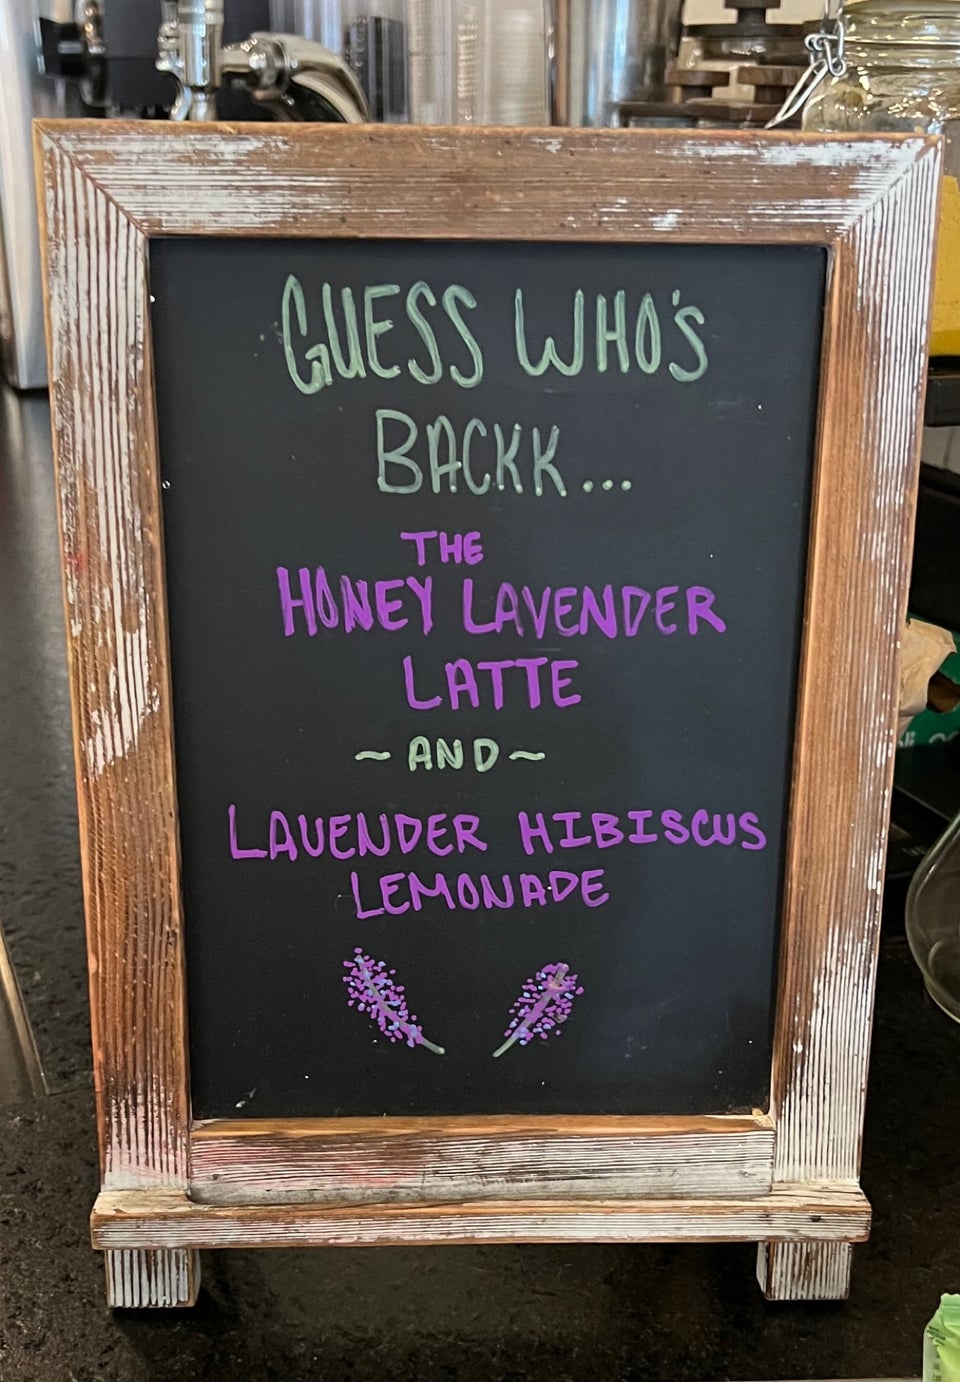 GUESS WHO'S
BACKK...
THE
HONEY LAVENDER
LATTE
~AND~
LAVENDER HIBISCUS
LEMONADE